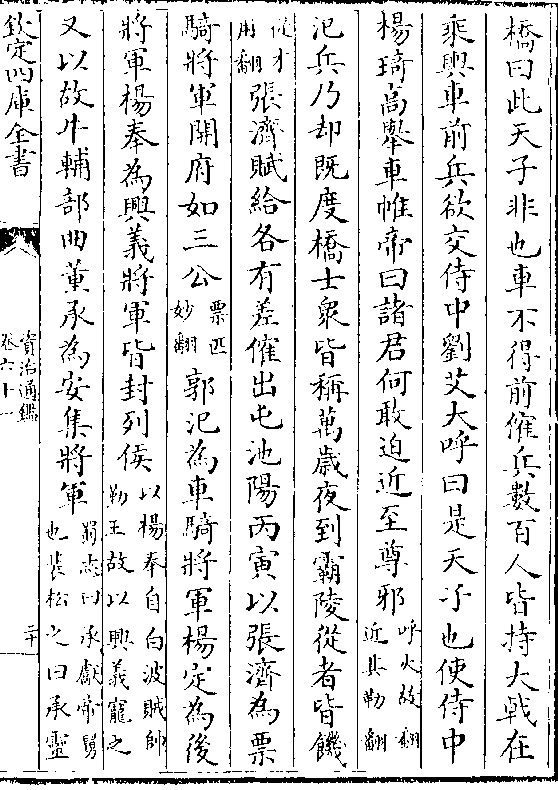 橋曰此天子非也車不得前傕兵數百人皆持大戟在
乘輿車前兵欲交侍中劉艾大呼曰是天子也使侍中
楊琦高舉車帷帝曰諸君何敢迫近至尊邪呼火故翻近其靳翻
汜兵乃却既度橋士衆皆稱萬歲夜到霸陵從者皆饑
從才用翻張濟賦給各有差傕出屯池陽丙寅以張濟為票
騎將軍開府如三公票匹妙翻郭汜為車騎將軍楊定為後
將軍楊奉為興義將軍皆封列侯以楊奉自白波賊帥勤王故以興義寵之
又以故牛輔部曲董承為安集將軍蜀志曰承獻帝舅也裴松之曰承靈
欽定四庫全書
資治通鑑
卷六十一
二十